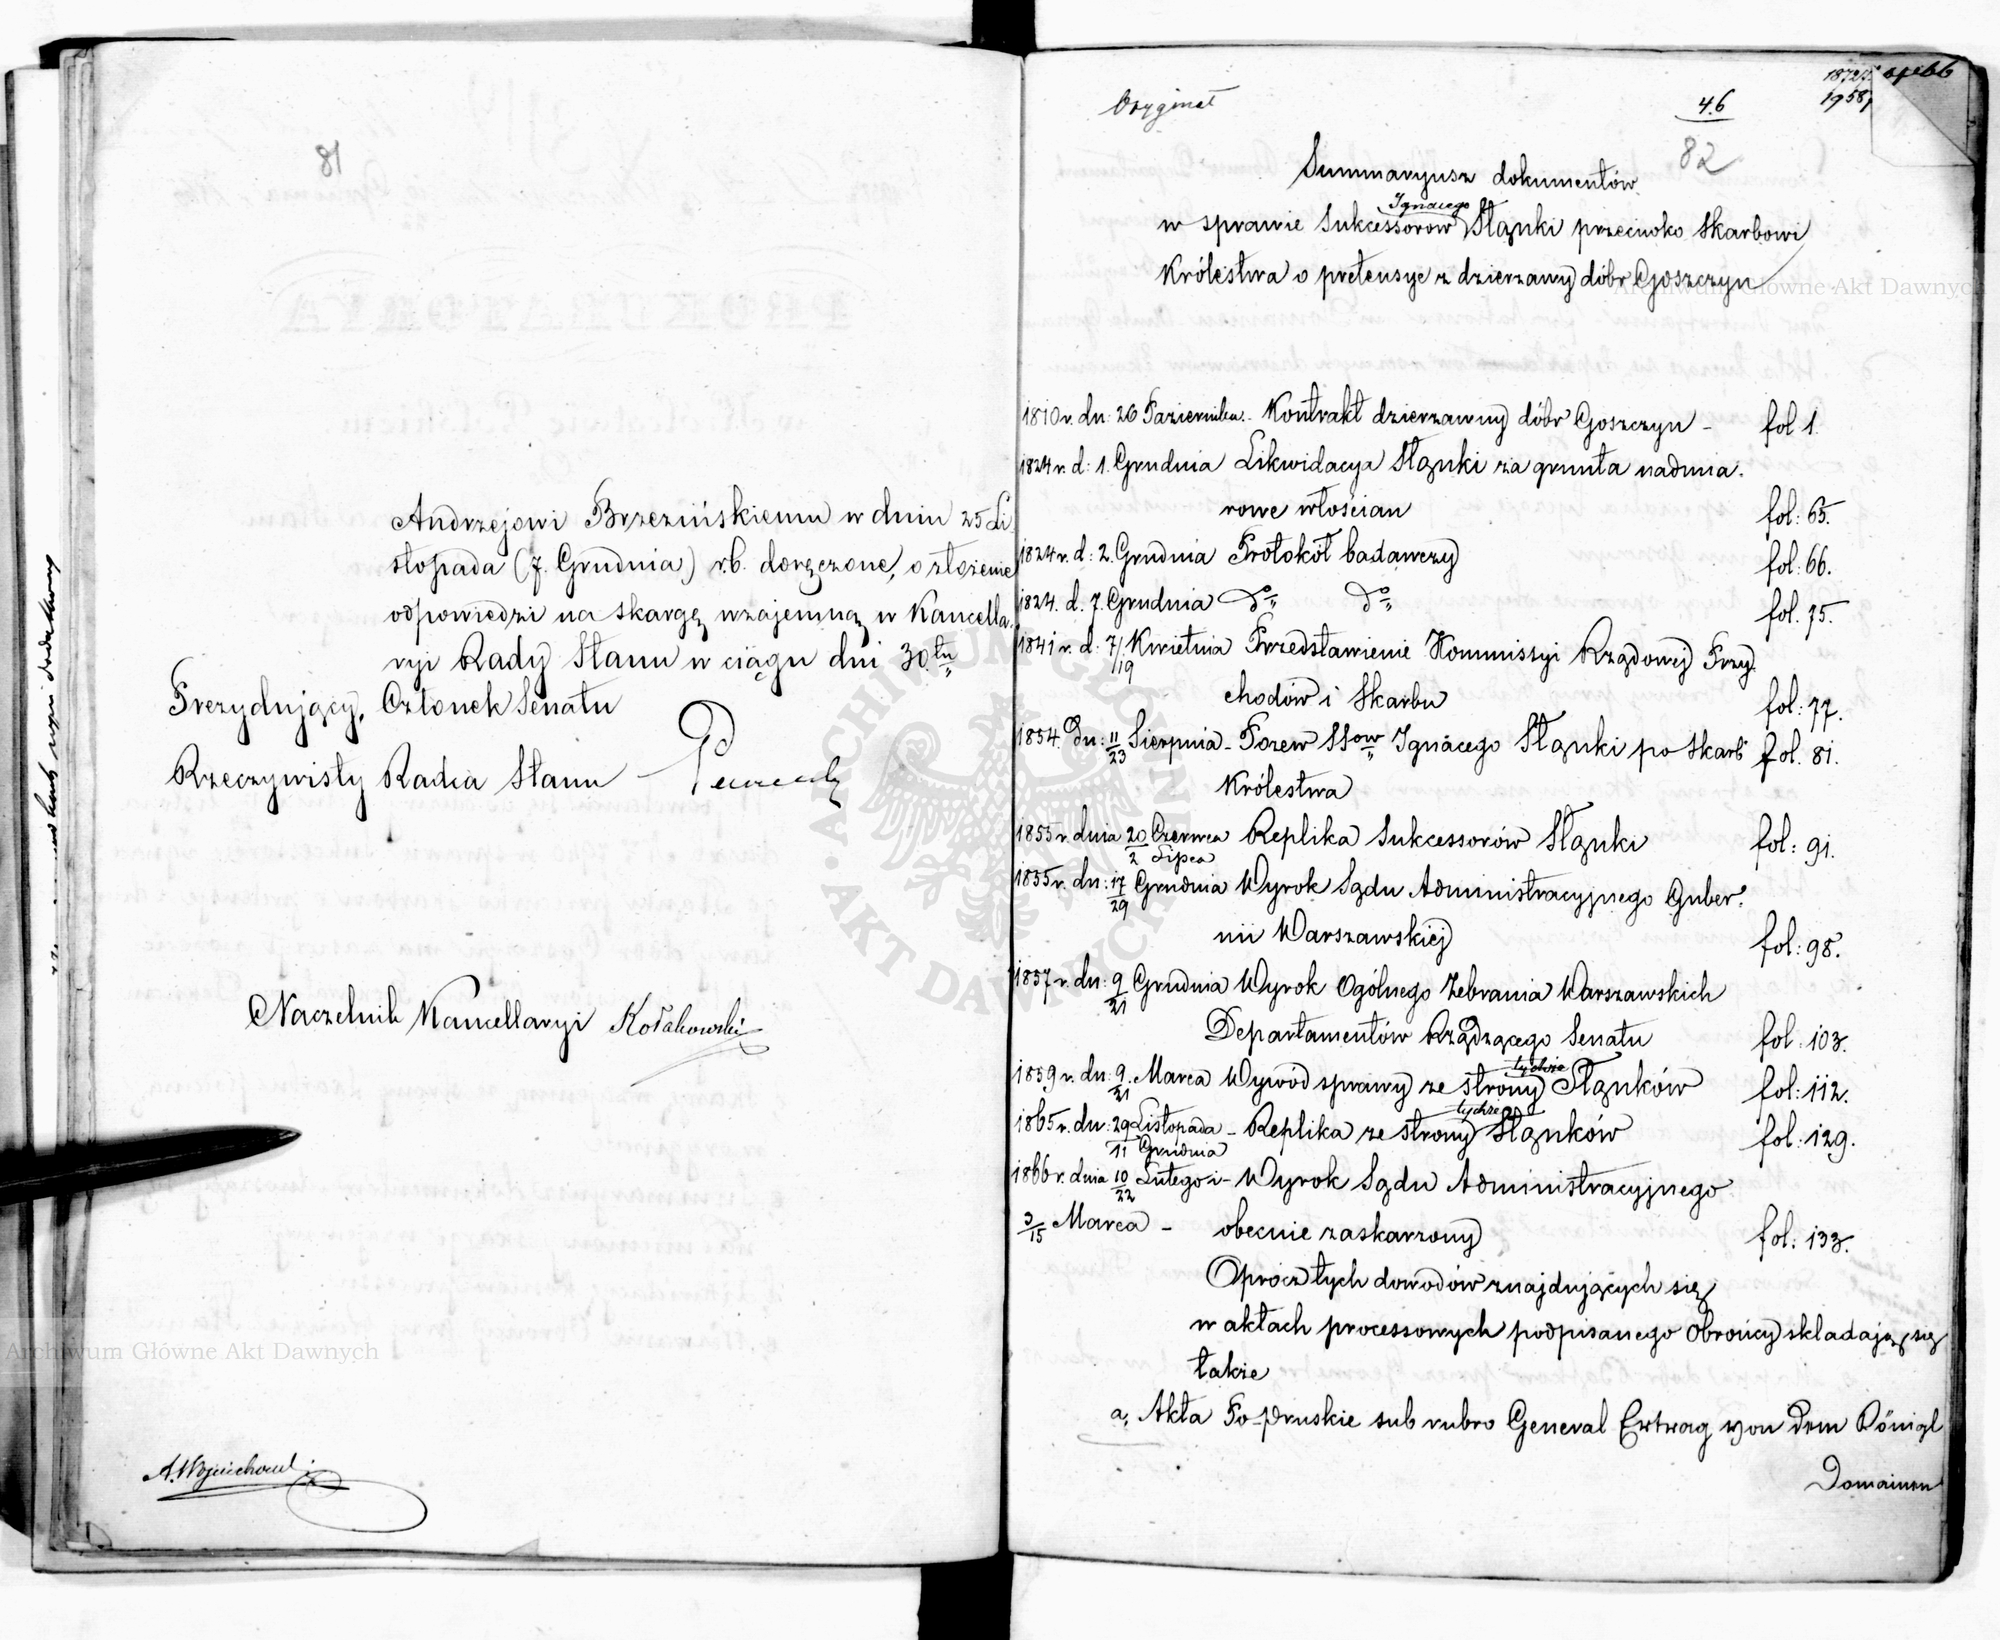 81
Andrzejowi Brzezińskiemu w dniu 25 Li
stopada (7. Grudnia) r.b. doręczone, o złożenie
odpowiedzi na skargę wzajemną w Kancella.
ryi Rady Stanu w ciągu dni 30.tu
Prezydujący, Członek Senatu
Rzeczywisty Radca Stanu
Naczelnik Kancellaryi Kołakowski
Oryginał
46
82
1872
1958
Summaryusz dokumentów
w sprawie Sukcessorów Ignacego Słąnki przeciwko Skarbowi
Królestwa o pretensye z dzierzawy dóbr Goszczyn
1810 r. dn: 26 Października. - Kontrakt dzierzawny dóbr Goszczyn - fol 1.
1824 r. d: 1. Grudnia Likwidacya Słąnki za grunta nadmia.
rowe włościan fol: 65.
1824 r. d: 2. Grudnia Protokół badawczy fol: 66.
1824. d. 7. Grudnia do do fol. 75.
1841 r. d. 7/19 Kwietnia Przedstawienie Kommissyi Rządowej Przy
chodów i Skarbu fol: 77.
1854. dn: 11/23 Sierpnia - Pozew SSów Ignacego Słąnki po Skarb fol. 81.
Królestwa
1855 r. dnia 20 Czerwca / 2 Lipca Replika Sukcessorów Słąnki fol: 91.
1855 r. dn: 17/29 Grudnia Wyrok Sądu Administracyjnego Guber.
nii Warszawskiej fol: 98.
1857 r. dn: 9/21 Grudnia Wyrok Ogólnego Zebrania Warszawskich
Departamentów Rządzącego Senatu fol: 103.
1859 r. dn: 9/21 Marca Wywód sprawy ze strony tychże Słąnków fol: 112.
1865 r. dn: 29 Listopada / 11 Grudnia - Replika ze strony tychże Słąnków fol: 129.
1866 r. dnia 10/22 Lutego i - Wyrok Sądu Administracyjnego
3/15 Marca - obecnie zaskarzony fol: 133.
Oprócz tych dowodów znajdujących się
w aktach processowych podpisanego Obrońcy składają się
także
a, Akta Po-pruskie sub rubro General Ertrag von dem Königl
Domainen
Archiwum Główne Akt Dawnych
Archiwum Główne Akt Dawnych
ARCHIWUM GŁÓWNE AKT DAWNYCH